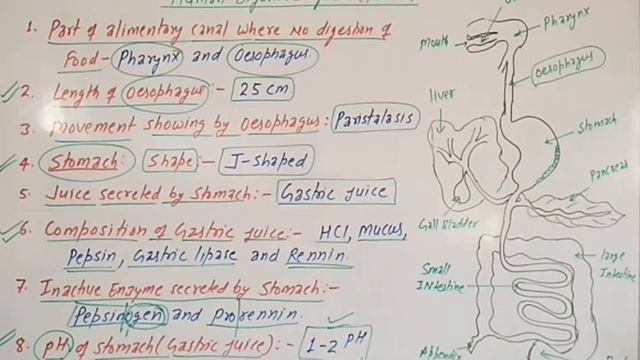 Human Digestive
1. Part of alimentary canal where No digestion of
Food - Pharynx and Oesophagus.
2. Length of Oesophagus :- 25 cm.
3. Movement showing by Oesophagus : Paristalasis
4. Stomach : Shape :- J-shaped
5. Juice secreted by Stomach :- Gastric juice
6. Composition of Gastric juice :- HCl, Mucus,
Pepsin, Gastric lipase and Rennin.
7. Inactive Enzyme secreted by Stomach :-
Pepsinogen and Prorennin.
8. pH of stomach (Gastric juice) :- 1-2 PH
Mouth
Pharynx
Oesophagus
liver
Stomach
Pancreas
Gall Bladder
Small
INtestine
large
Intestine
Appendix